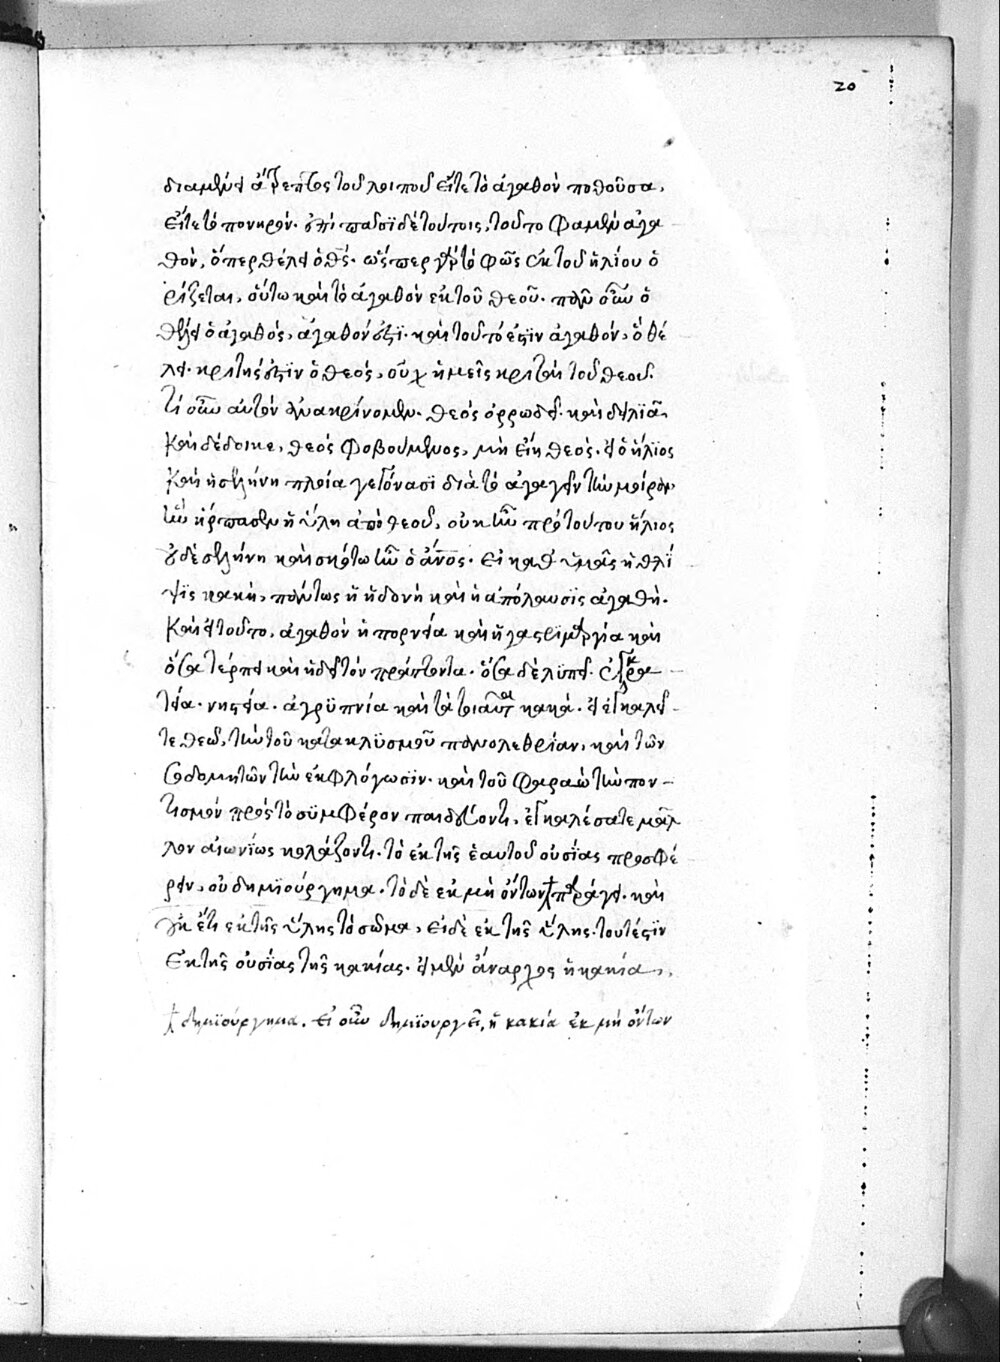 20
διαμένει ἄτρεπτος τοῦ λοιποῦ εἴτε τὸ ἀγαθὸν ποθοῦσα,
εἴτε τὸ πονηρόν. ἐπὶ πᾶσι δὲ τούτοις, τοῦτο φαμὲν ἀγα
θὸν, ὅπερ θέλει ὁ θς. ὥσπερ γὰρ τὸ φῶς ἐκ τοῦ ἡλίου ὁ
ρίζεται, οὕτω καὶ τὸ ἀγαθὸν ἐκ τοῦ θεοῦ. πᾶν οὖν ὃ
θέλει ὁ ἀγαθὸς, ἀγαθόν ἐστϊ. καὶ τοῦτό ἐστιν ἀγαθὸν, ὃ θέ
λει. κριτής ἐστϊν ὁ θεὸς, οὐχ ἡμεῖς κριταὶ τοῦ θεοῦ.
τί οὖν αὐτὸν ἀνακρίνομεν. θεὸς ὀρρωδεῖ. καὶ δειλιᾶ,
καὶ δέδοικε, θεὸς φοβούμενος, μὴ εἴη θεός. εἰ ὁ ἥλϊος
καὶ ἡ σελήνη πλοῖα γεγόνασϊ διὰ τὸ ἀγαγεῖν τὴν μοῖραν
ἣν ἥρπασεν ἡ ὕλη ἀπὸ θεοῦ, οὐκ ἦν πρὸ τούτου ἥλιος
οὐδὲ σελήνη καὶ σκότω ἦν ὁ ἄνος. εἰ καθ' ὑμᾶς ἡ θλί
ψϊς κακὴ, πάντως ἡ ἡδονὴ καὶ ἡ ἀπόλαυσϊς ἀγαθή.
καὶ εἰ τοῦτο, ἀγαθὸν ἡ πορνεία καὶ ἡ γαστριμαργία καὶ
ὅσα τέρπει καὶ ἡδύει τὸν πράττοντα. ὅσα δὲ λυπεῖ. ἐγκρά
τεία. νηστεία. ἀγρϋπνία καὶ τὰ τοιαῦτα κακά. εἰ ἐγκαλεῖ
τε θεῶ, τὴν τοῦ κατακλϋσμοῦ πανολεθρίαν, καὶ τῶν
σοδομητῶν τὴν ἐκφλόγωσϊν. καὶ τοῦ φαραὼ τὴν πον
τισμὸν πρὸς τὸ σϋμφέρον παιδεύοντι, ἐγκαλέσατε μᾶλ
λον αἰωνϊως κολάζοντι. τὸ ἐκ τῆς ἑαυτοῦ οὐσϊας προσφέ
ρειν, οὐ δημϊούργημα. τὸ δὲ ἐκ μὴ ὄντων παράγει. καὶ
οὐκ ἔτι ἐκ τῆς ὕλης τὸ σῶμα, εἰ δὲ ἐκ τῆς ὕλης. τουτέστϊν
ἐκ τῆς οὐσϊας τῆς κακίας. εἰ μὲν ἄναρχος ἡ κακία,
δημϊούργημα. εἰ οὖν δημϊουργεῖ, ἡ κακία ἐκ μὴ ὄντων